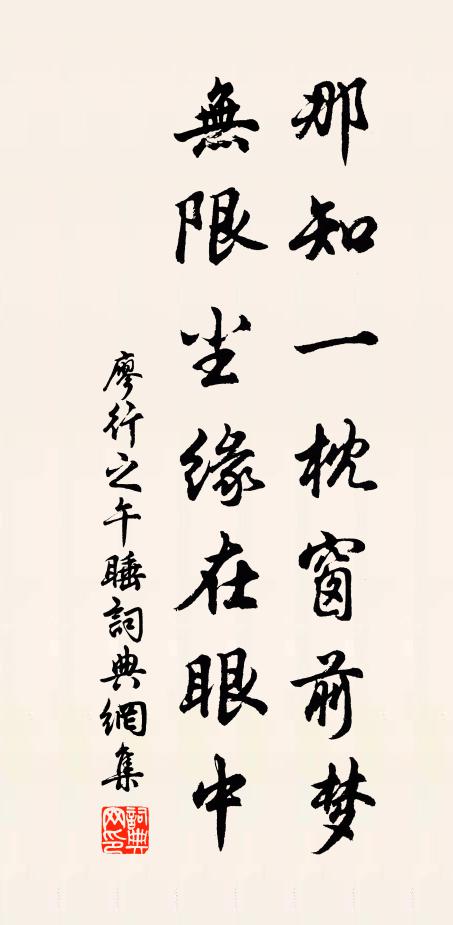 那知一枕窗前梦
無限尘缘在眼中
廖行之午睡詞典網集
詞典網印